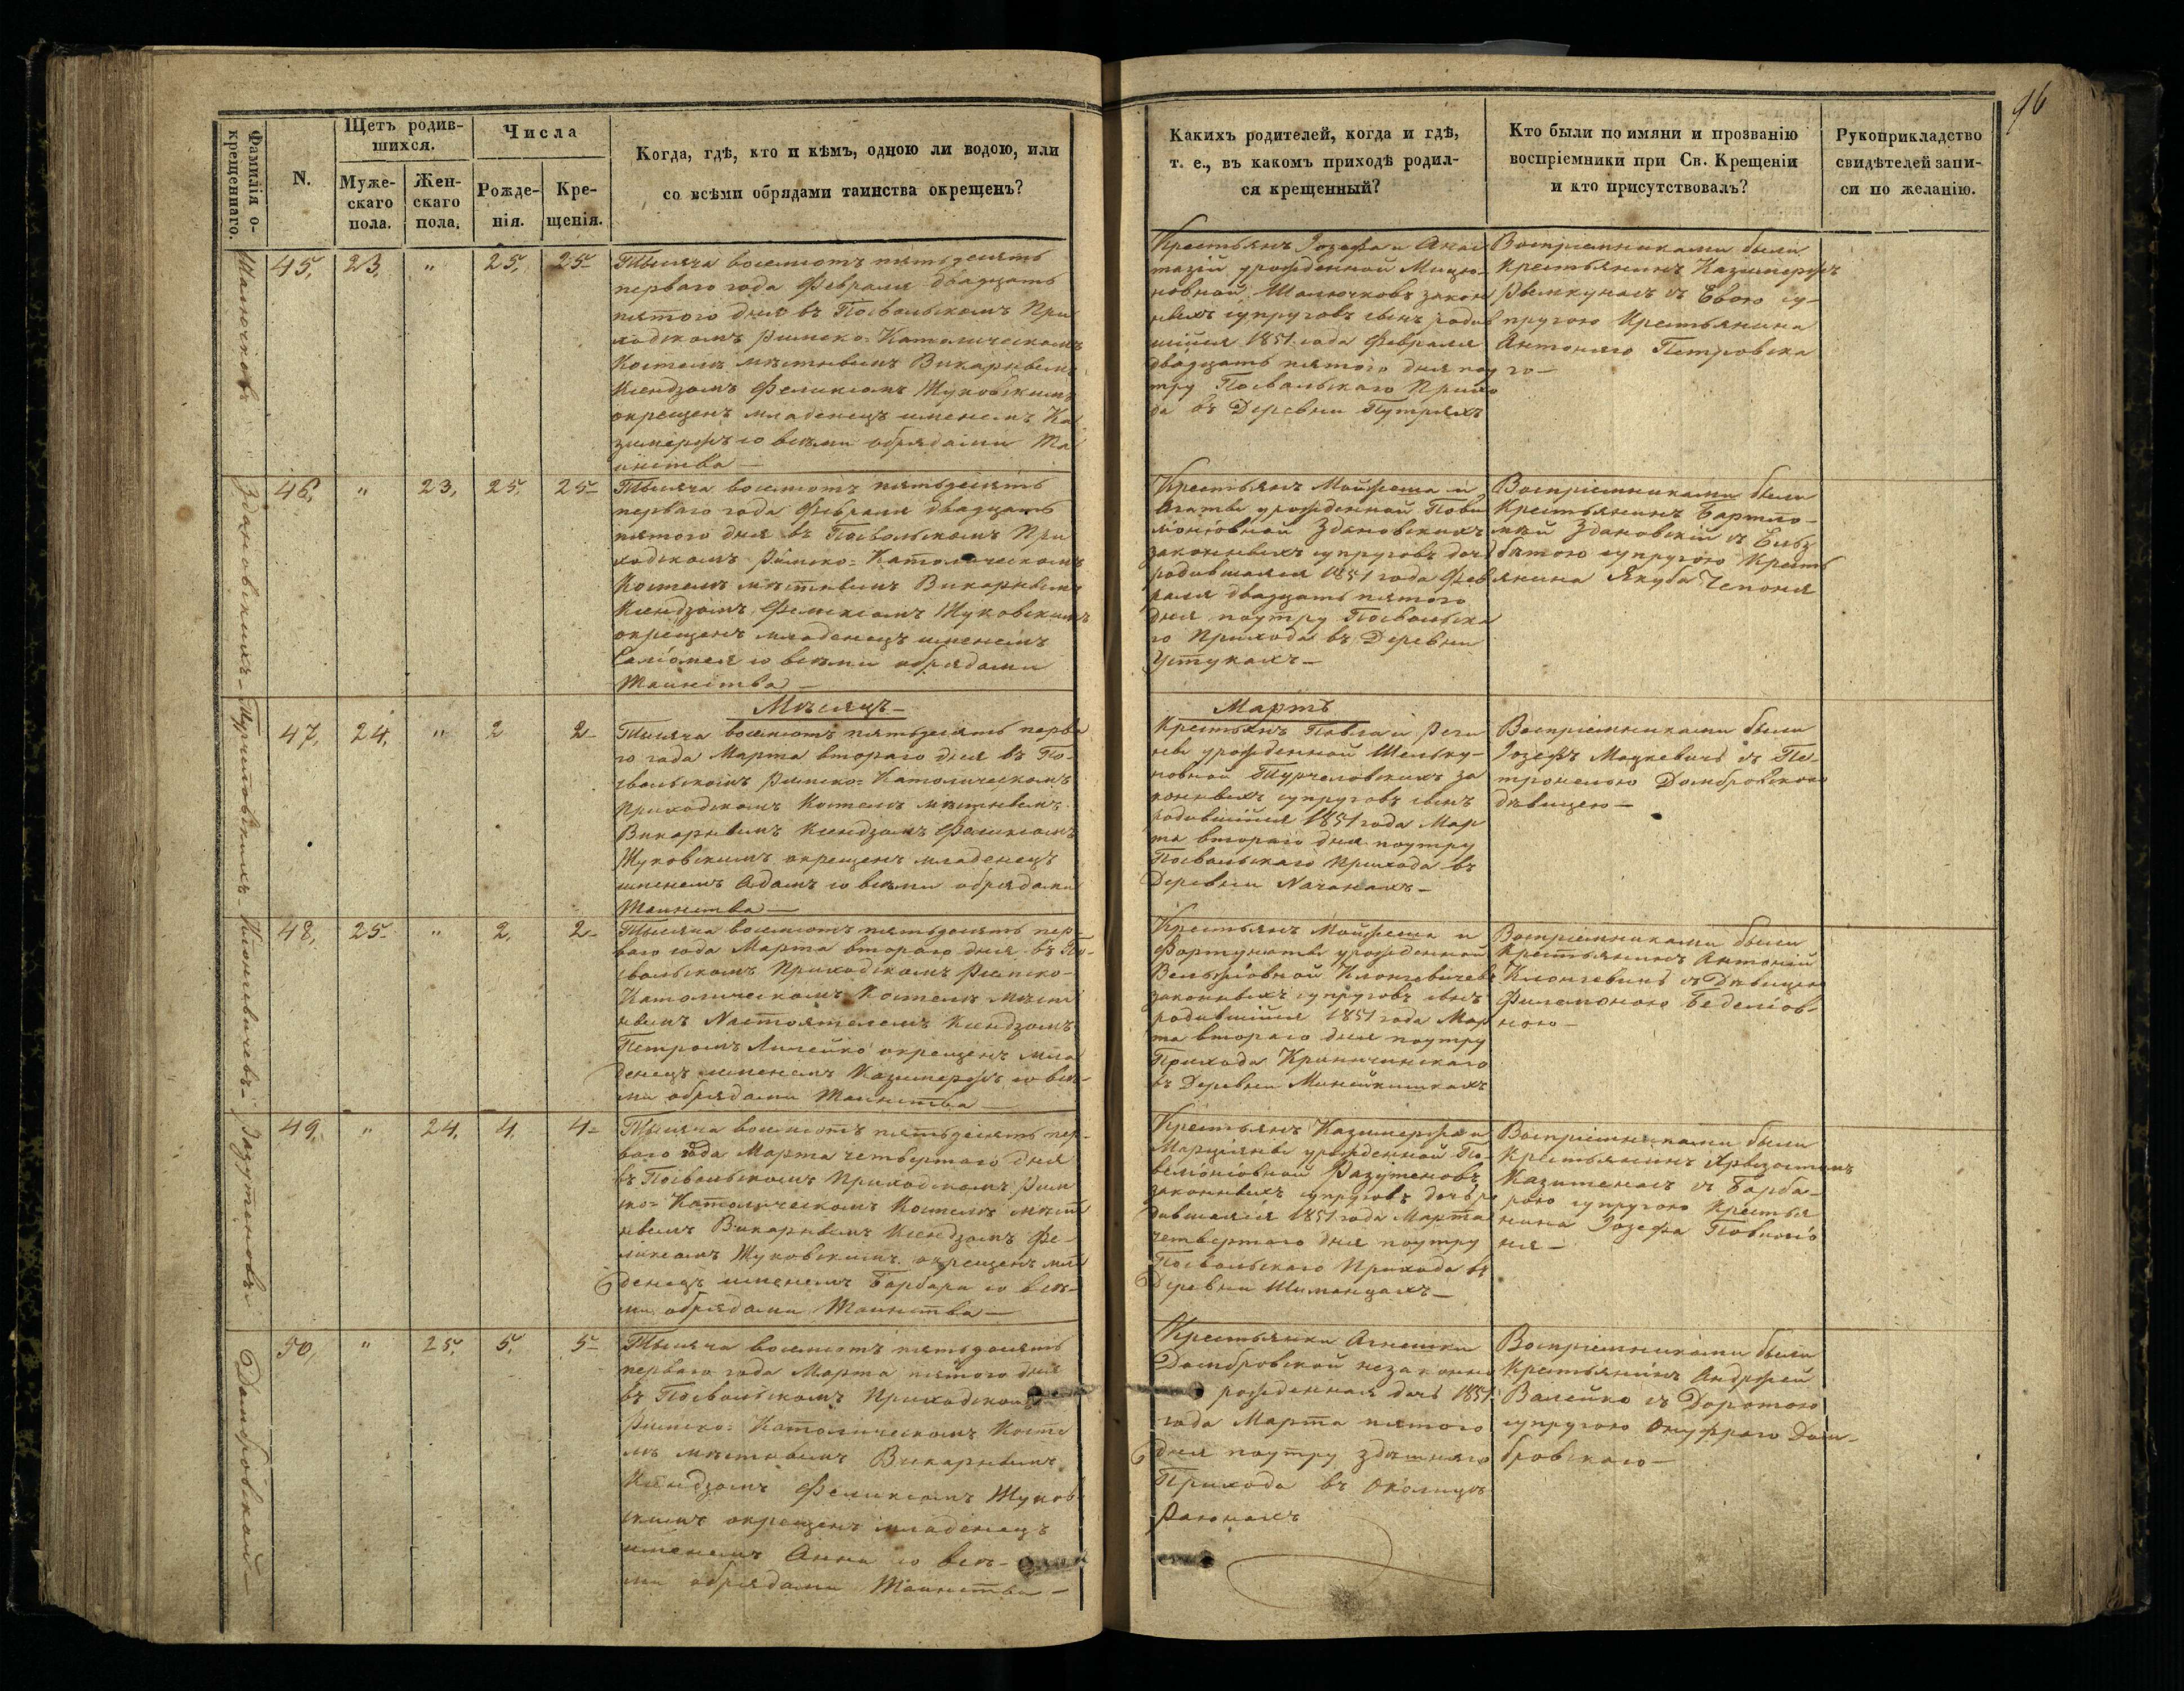 96
Фамилія о-
крещеннаго.
N.
Щетъ родив-
шихся.
Муже-
скаго
пола.
Жен-
скаго
пола.
Числа
Рожде-
нія.
Кре-
щенія.
Когда, гдѣ, кто и кѣмъ, одною ли водою, или
со всѣми обрядами таинства окрещенъ?
Какихъ родителей, когда и гдѣ,
т. е., въ какомъ приходѣ родил-
ся крещенный?
Кто были по имяни и прозванію
воспріемники при Св. Крещеніи
и кто присутствовалъ?
Рукоприкладство
свидѣтелей запи-
си по желанію.
Шалючковъ
45, 23, " 25, 25-
Тысяча восемсотъ пятьдесятъ
перваго года Февраля двадцать
пятого дня въ Посвольскомъ При
ходскомъ Римско-Католическомъ
Костелѣ мѣстнымъ Викарнымъ
Ксендзомъ Феликсомъ Жуковскимъ
окрещенъ младенецъ именемъ Ка
зимержъ со всѣми обрядами Та
инства —
Крестьянъ Іозефа и Анас
тазіи урожденной Мицю-
новной Шалючковъ закон
ныхъ супруговъ сынъ родив
шійся 1851 года Февраля
двадцать пятого дня поу
тру Посвольскаго Прихо
да въ Деревни Путряхъ
Воспріемниками были
Крестьянинъ Казимержъ
Рымкунасъ съ Евою су-
пругою Крестьянина
Антоняго Петровска
го —
Здановскихъ -
46, " 23, 25, 25-
Тысяча восемсотъ пятьдесятъ
перваго года Февраля двадцать
пятого дня въ Посвольскомъ При
ходскомъ Римско-Католическомъ
Костелѣ мѣстнымъ Викарнымъ
Ксендзомъ Феликсомъ Жуковскимъ
окрещенъ младенецъ именемъ
Саломея со всѣми обрядами
Таинства —
Крестьянъ Мойжеша и
Агаты урожденной Пови
Здановскихъ
законныхъ супруговъ дочь
родившаяся 1851 года Фев
раля двадцать пятого
дня поутру Посвольска
го Прихода въ Деревни
Устукахъ —
Воспріемниками были
Крестьянинъ Бартло-
мей Здановскій съ Ельз
бѣтою супругою Кресть
янина Якуба Чепоня
Мѣсяцъ -
Мартъ
Турчеловскихъ -
47, 24, " 2 2-
Тысяча восемсотъ пятьдесятъ перва
го года Марта втораго дня въ По-
свольскомъ Римско-Католическомъ
Приходскомъ Костелѣ мѣстнымъ
Викарнымъ Ксендзомъ Феликсомъ
Жуковскимъ окрещенъ младенецъ
именемъ Адамъ со всѣми обрядами
Таинства —
Крестьянъ Павла и Реги
ны урожденной Шельку-
новной Турчеловскихъ за
конныхъ супруговъ сынъ
родившійся 1851 года Мар
та втораго дня поутру
Посвольскаго Прихода въ
Деревни Начанахъ —
Воспріемниками были
Іозефъ Мацкевичъ съ Пе-
тронелою Домбровскою
дѣвицею —
Клонгевичевъ -
48, 25- " 2, 2-
Тысяча восемсотъ пятьдесятъ пер-
ваго года Марта втораго дня въ По-
свольскомъ Приходскомъ Римско-
Католическомъ Костелѣ мѣст
нымъ Настоятелемъ Ксендзомъ
Петромъ окрещенъ мла
денецъ именемъ Казимержъ со всѣ-
ми обрядами Таинства —
Крестьянъ Мойжеша и
Фортунаты урожденной
Клонгевичевъ
законныхъ супруговъ сынъ
родившійся 1851 года Мар
та втораго дня поутру
Прихода Криничинскаго
въ Деревни Минейкишкахъ
Воспріемниками были
Крестьянинъ Антоній
Клонгевичъ съ Дѣвицею
Филемоною Беделіов-
ною —
Разутеновъ
49, " 24, 4, 4-
Тысяча восемсотъ пятьдесятъ пер-
ваго года Марта четвертаго дня
въ Посвольскомъ Приходскомъ Рим
ско-Католическомъ Костелѣ мѣст
нымъ Викарнымъ Ксендзомъ Фе-
ликсомъ Жуковскимъ окрещенъ мла
денецъ именемъ Барбара со всѣ-
ми обрядами Таинства —
Крестьянъ Казимержа и
Марціяны урожденной По-
Разутеновъ
законныхъ супруговъ дочь ро
дившаяся 1851 года Марта
четвертаго дня поутру
Посвольскаго Прихода въ
Деревни Шиманцахъ —
Воспріемниками были
Крестьянинъ
Казитенасъ съ Барба-
рою супругою Крестья
нина Іозефа Повилю
ня —
Домбровской -
50, " 25, 5, 5-
Тысяча восемсотъ пятьдесятъ
перваго года Марта пятого дня
въ Посвольскомъ Приходскомъ
Римско-Католическомъ Косте
лѣ мѣстнымъ Викарнымъ
Ксендзомъ Феликсомъ Жуков-
скимъ окрещенъ младенецъ
именемъ Анна со всѣ-
ми обрядами Таинства —
Крестьянки Агнешки
Домбровской незаконно
рожденная дочь 1851
года Марта пятого
дня поутру здѣшняго
Прихода въ Околицѣ
Раюнахъ
Воспріемниками были
Крестьянинъ Андржей
Валейко съ Доротою
супругою Онуфраго Дом-
бровскаго —